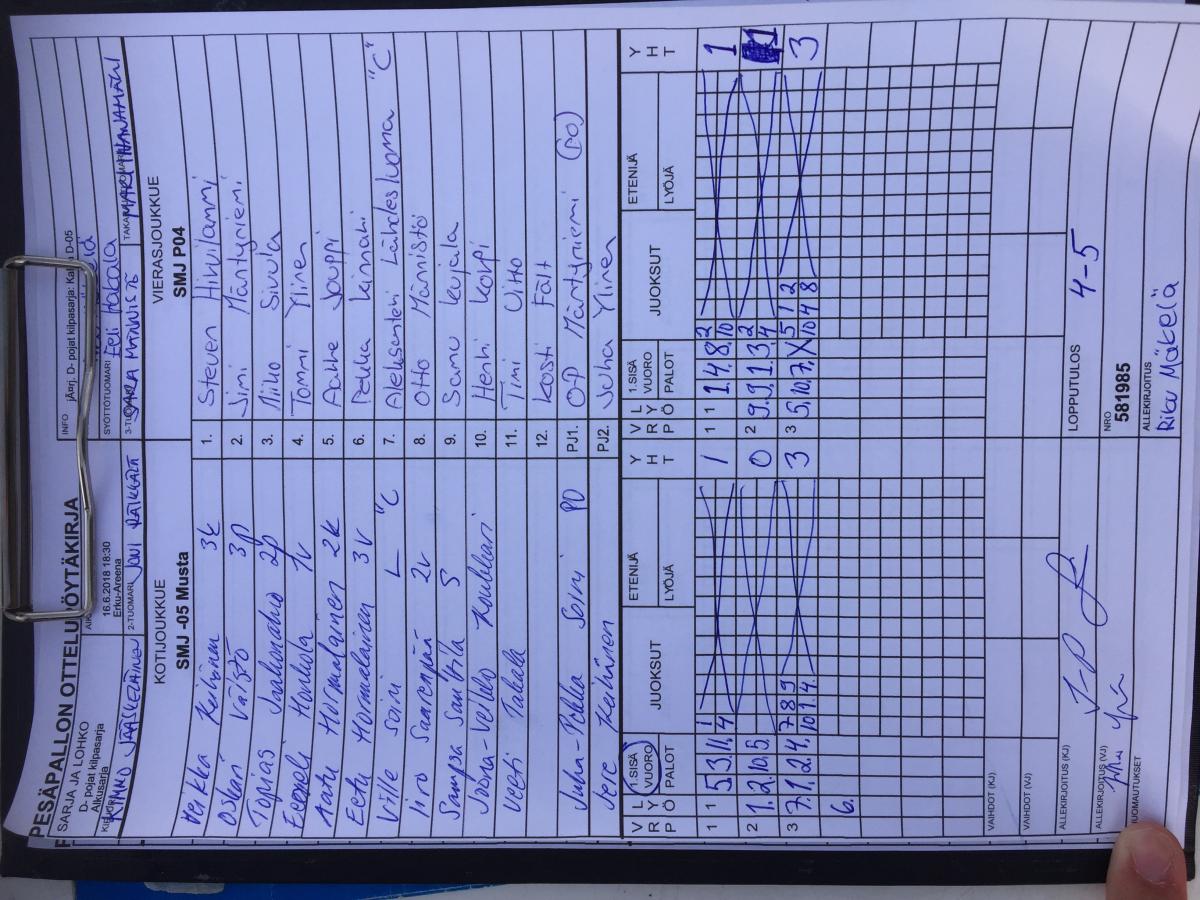 PESÄPALLON OTTELUPÖYTÄKIRJA
SARJA JA LOHKO
D- pojat kilpasarja
Alkusarja
16.6.2018 18:30
Erku-Areena
INFO
D- pojat kilpasarja:
D-05
SYÖTTÖTUOMARI
KIMMO JÄÄSKELÄINEN
2-TUOMARI
KOTIJOUKKUE
SMJ -05 Musta
VIERASJOUKKUE
SMJ P04
Veikka Keihänen 3k
1. Steven Hirvilammi
Oskari Väistö 3p
2. Jimi Mäntyniemi
Topias Jaakonaho 2p
3. Niiko Sivula
Eemeli Honkola 1v
4. Tommi Ylinen
Aatu Hormalainen 2k
5. Aahe Jouppi
Eetu Hormalainen 3v
6. Pekka
Ville Soini L "C
7. Aleksanteri Lähdesluoma "C"
Iiro Saarenpää 2v
8. Otto Männistö
Sampsa Santtila S
9. Samu Kujala
Joona-Veikko
10. Henri Korpi
Veeti Takala
11. Timi Uitto
12. Kosti Fält
Juha-Pekka Soini PO
PJ1. OP Mäntyniemi (PO)
Jere Keihänen
PJ2. Juha Ylinen
V R P L Y Ö 1.SISÄ VUORO PALOT JUOKSUT ETENIJÄ LYÖJÄ Y H T
V R P L Y Ö 1.SISÄ VUORO PALOT JUOKSUT ETENIJÄ LYÖJÄ Y H T
1 1 5. 3. 11. 1 4 1
1 1 1. 4. 8. 2 10 1
2 1. 2. 10. 5. 0
2 9. 9. 1. 3. 2 4 1
3 7. 1. 2. 4. 7 8 9 10 1 4 3
3 5. 10. 7. X 5 1 2 10 4 8 3
6.
VAIHDOT (KJ)
VAIHDOT (VJ)
ALLEKIRJOITUS (KJ)
LOPPUTULOS 4-5
ALLEKIRJOITUS (VJ)
NRO
581985
HUOMAUTUKSET
ALLEKIRJOITUS
Riku Mäkelä